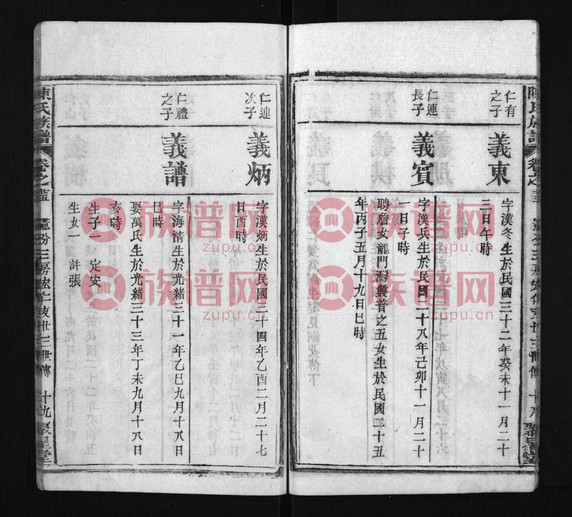 仁有
之子
義東
字漢冬生於民國三十二年癸未十一月二十
三日午時
仁連
長子
義賓
字漢兵生於民國二十八年己卯十一月二十
一日子時
聘詹女龍門
普之五女生於民國二十五
年丙子五月十九日巳時
陳氏族譜
卷之
十八
聚星堂
仁連
次子
義炳
字漢炳生於民國三十四年乙酉二月二十七
日酉時
仁禮
之子
義譜
字海清生於光緒三十一年乙巳九月十八日
巳時
娶萬氏生於光緒三十三年丁未九月十八日
亥時
生子 定安
生女一 許張
陳氏族譜
卷之
三房宏仁支廿三世傳
十九
聚星堂
族谱网
zupu.cn